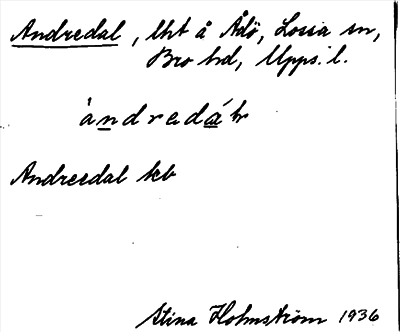 Andredal, lht å Ådö, Lossa sn,
Bro hd, Upps. l.
àndredáʼ
Andreedal kb
Stina Holmström 1936